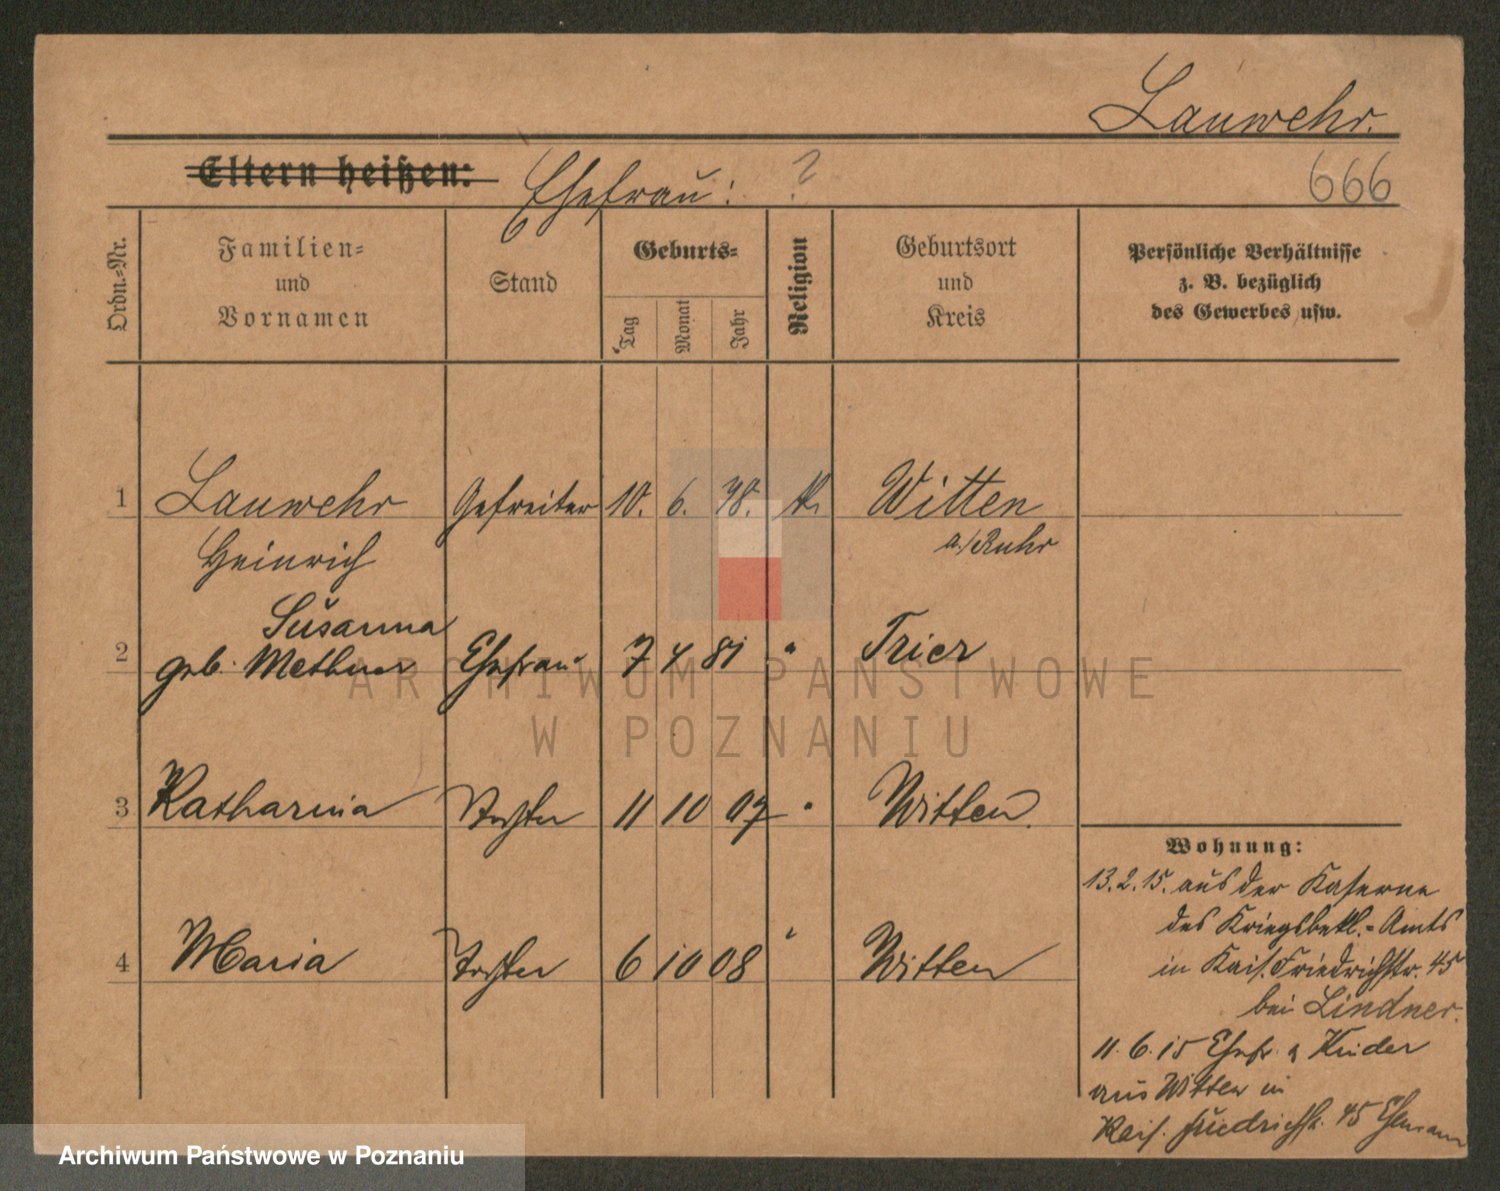 Lauwehr.
Eltern heißen: Ehefrau: ?
666
Ordn.=Nr.
Familien=
und
Vornamen
Stand
Geburts=
Tag
Monat
Jahr
Religion
Geburtsort
und
Kreis
Persönliche Verhältnisse
z. B. bezüglich
des Gewerbes usw.
1 Lauwehr Gefreiter 10. 6. 78. k. Witten
Heinrich a./Ruhr
Susanna
2 geb. Methner Ehefrau 7 4 81 " Trier
3 Katharina Tochter 11 10 07 " Witten
4 Maria Tochter 6 10 08 " Witten
Wohnung:
13.2.15. aus der Kaserne
des Kriegsbekl.=Amts
in Kais. Friedrichstr. 45
bei Lindner.
11.6.15 Ehefr. u Kinder
aus Witten in
Kais. Friedrichstr. 45 Ehemann
ARCHIWUM PAŃSTWOWE
W POZNANIU
Archiwum Państwowe w Poznaniu